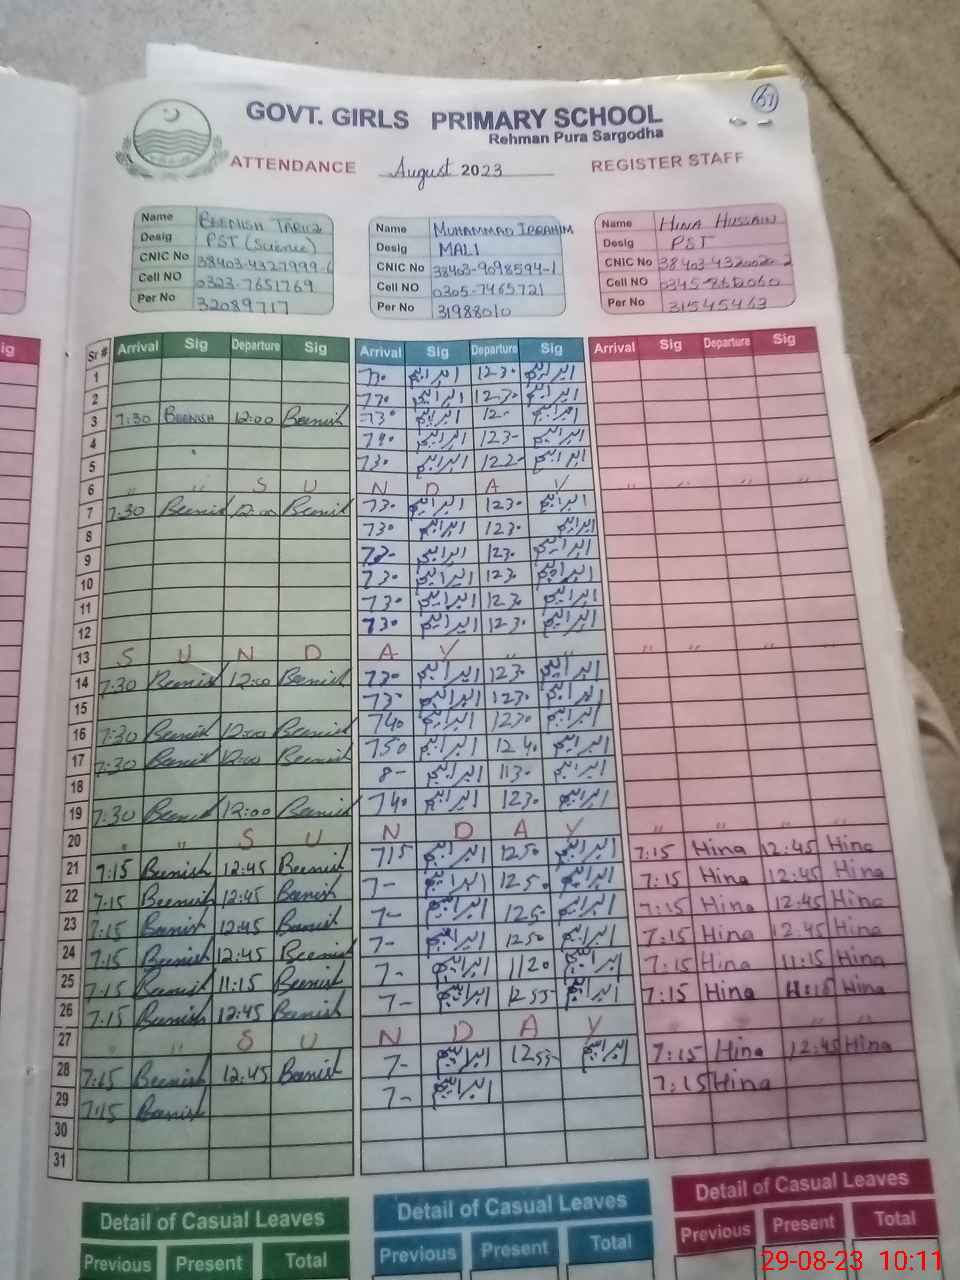 67
GOVT. GIRLS PRIMARY SCHOOL
Rehman Pura Sargodha
ATTENDANCE August 2023 REGISTER STAFF
Name BEENISH TARIQ
Desig PST (Science)
CNIC No 38403-4327999-6
Cell NO 0323-7651769
Per No 32089717
Name MUHAMMAD IBRAHIM
Desig MALI
CNIC No 38403-9098594-1
Cell NO 0305-7465721
Per No 31988010
Name HINA HUSSAIN
Desig PST
CNIC No
Cell NO
Per No 31545463
ig
Sr # Arrival Sig Departure Sig Arrival Sig Departure Sig Arrival Sig Departure Sig
1 ابراہیم 1230 ابراہیم
2 730 ابراہیم 1230 ابراہیم
3 7:30 BEENISH 12:00 Beenish 730 ابراہیم 12- ابراہیم
4 ابراہیم 123- ابراہیم
5 730 ابراہیم 122- ابراہیم
6 " " S U N D A Y " " " "
7 7:30 Beenish 12:00 Beenish 730 ابراہیم 1230 ابراہیم
8 730 ابراہیم 1230 ابراہیم
9 ابراہیم 1230 ابراہیم
10 730 ابراہیم 1230 ابراہیم
11 730 ابراہیم 1230 ابراہیم
12 730 ابراہیم 1230 ابراہیم
13 S U N D A Y " " " " " "
14 7:30 Beenish 12:00 Beenish 730 ابراہیم 1230 ابراہیم
15 730 ابراہیم 1230 ابراہیم
16 7:30 Beenish 12:00 Beenish 740 ابراہیم 1230 ابراہیم
17 7:30 Beenish 12:00 Beenish 750 ابراہیم 1240 ابراہیم
18 8- ابراہیم 1130 ابراہیم
19 7:30 Beenish 12:00 Beenish 740 ابراہیم 1230 ابراہیم
20 " " S U N D A Y " " " "
21 7:15 Beenish 12:45 Beenish 715 ابراہیم 1250 ابراہیم 7:15 Hina 12:45 Hina
22 7:15 Beenish 12:45 Beenish 7- ابراہیم 1250 ابراہیم 7:15 Hina 12:45 Hina
23 7:15 Beenish 12:45 Beenish 7- ابراہیم 1250 ابراہیم 7:15 Hina 12:45 Hina
24 7:15 Beenish 12:45 Beenish 7- ابراہیم 1250 ابراہیم 7:15 Hina 12:45 Hina
25 7:15 Beenish 11:15 Beenish 7- ابراہیم 1120 ابراہیم 7:15 Hina 11:15 Hina
26 7:15 Beenish 12:45 Beenish 7- ابراہیم 1255 ابراہیم 7:15 Hina Hina
27 " " S U N D A Y " " " "
28 7:15 Beenish 12:45 Beenish 7- ابراہیم 1255 ابراہیم 7:15 Hina 12:45 Hina
29 7:15 Beenish 7- ابراہیم 7:15 Hina
30
31
Detail of Casual Leaves Detail of Casual Leaves Detail of Casual Leaves
Previous Present Total Previous Present Total Previous Present Total
29-08-23 10:11